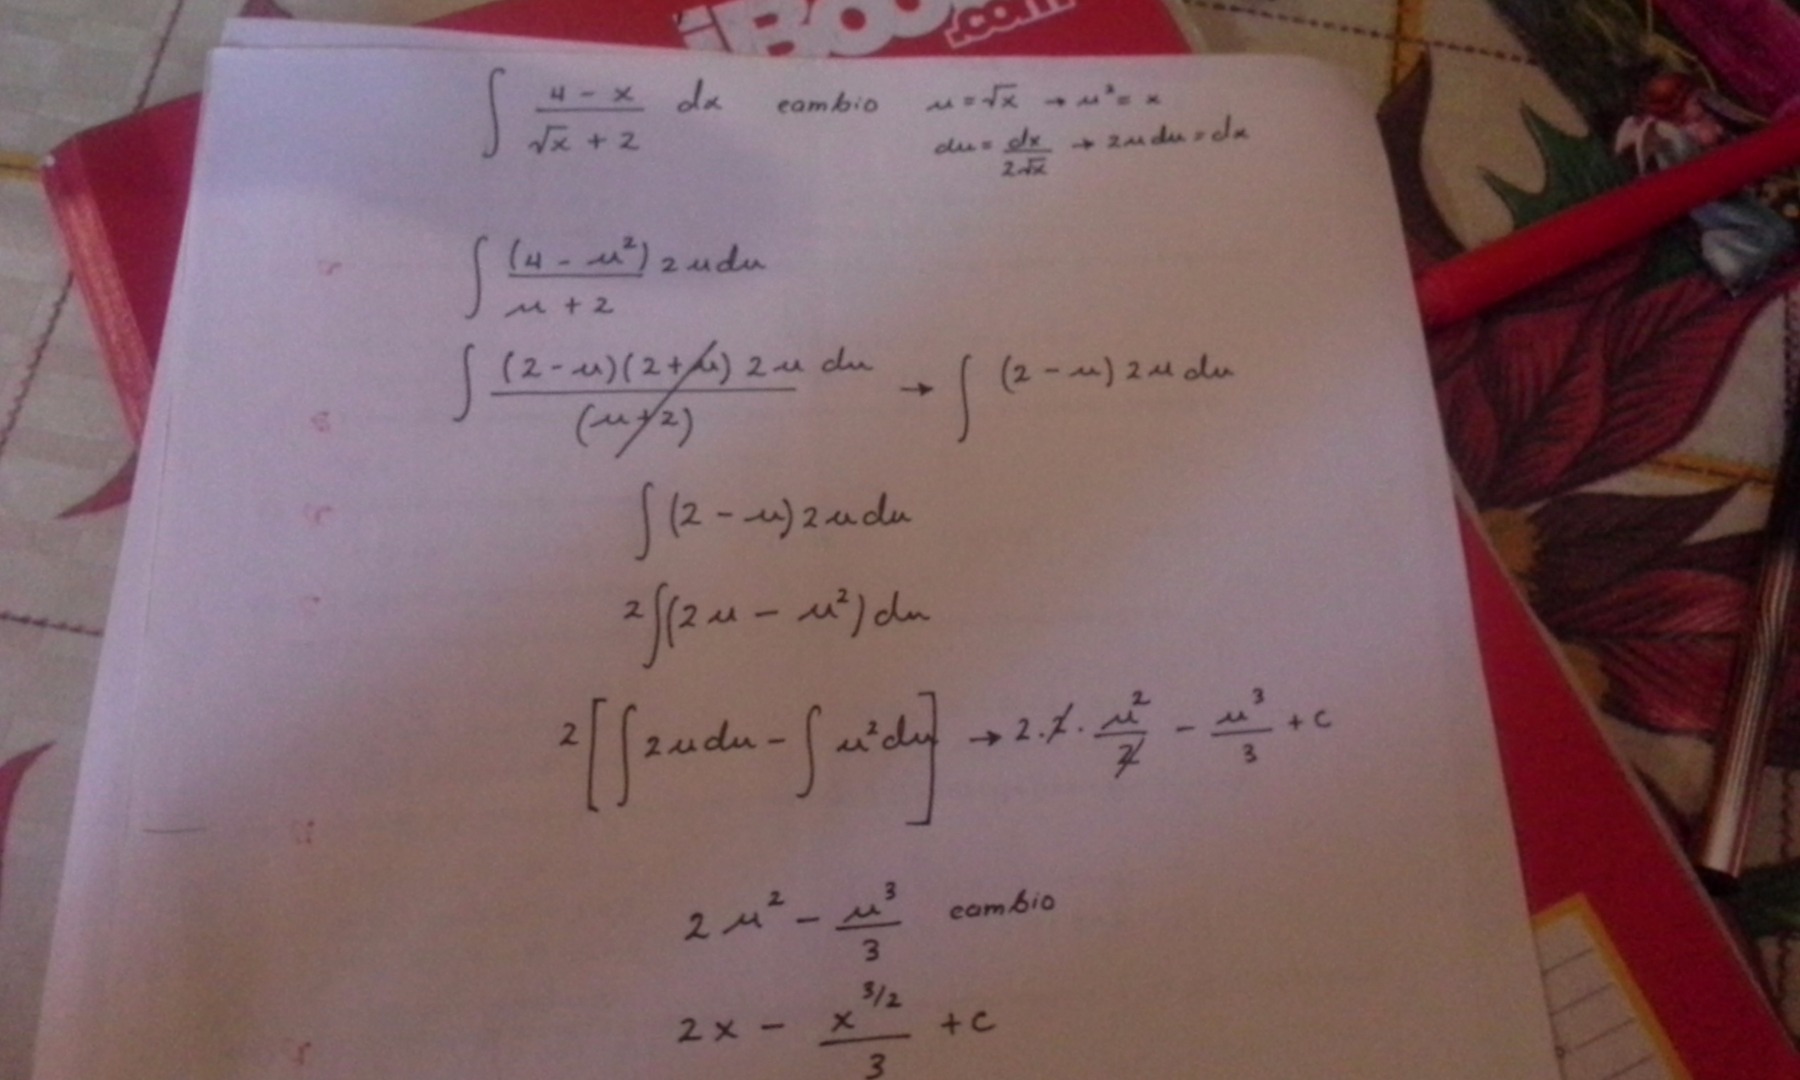 iBoo .com
∫ (4 - x)/(√x + 2) dx cambio u = √x → u² = x
du = dx/(2√x) → 2u du = dx
∫ (4 - u²)/(u + 2) 2u du
∫ (2 - u)(2 + u) 2u du/(u + 2) → ∫ (2 - u) 2u du
∫ (2 - u) 2u du
2∫(2u - u²) du
2[∫ 2u du - ∫ u² du] → 2 · 2 · u²/2 - u³/3 + c
2u² - u³/3 cambio
2x - x^(3/2)/3 + c